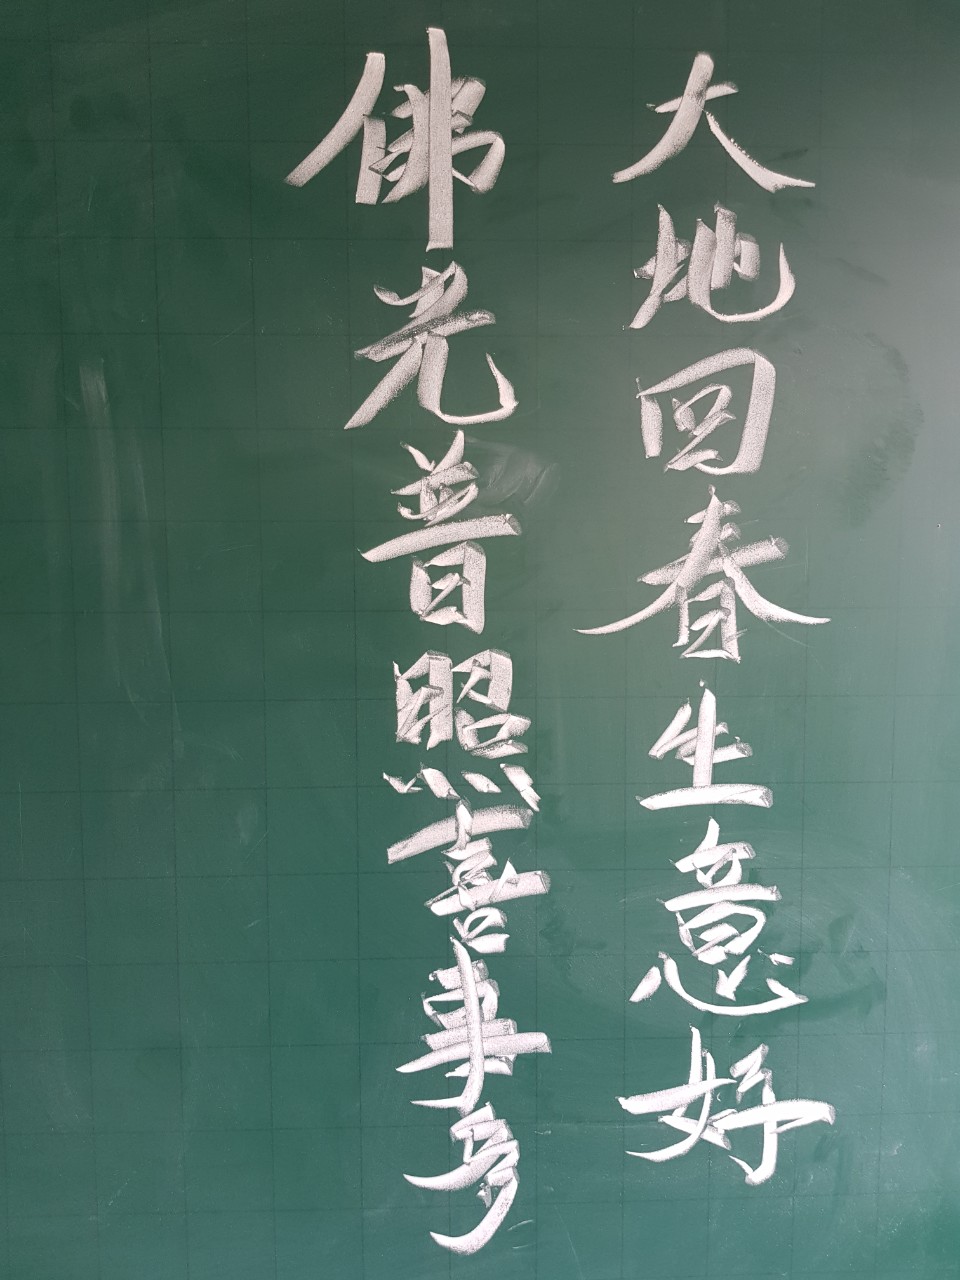 大地回春生意好
佛光普照喜事多